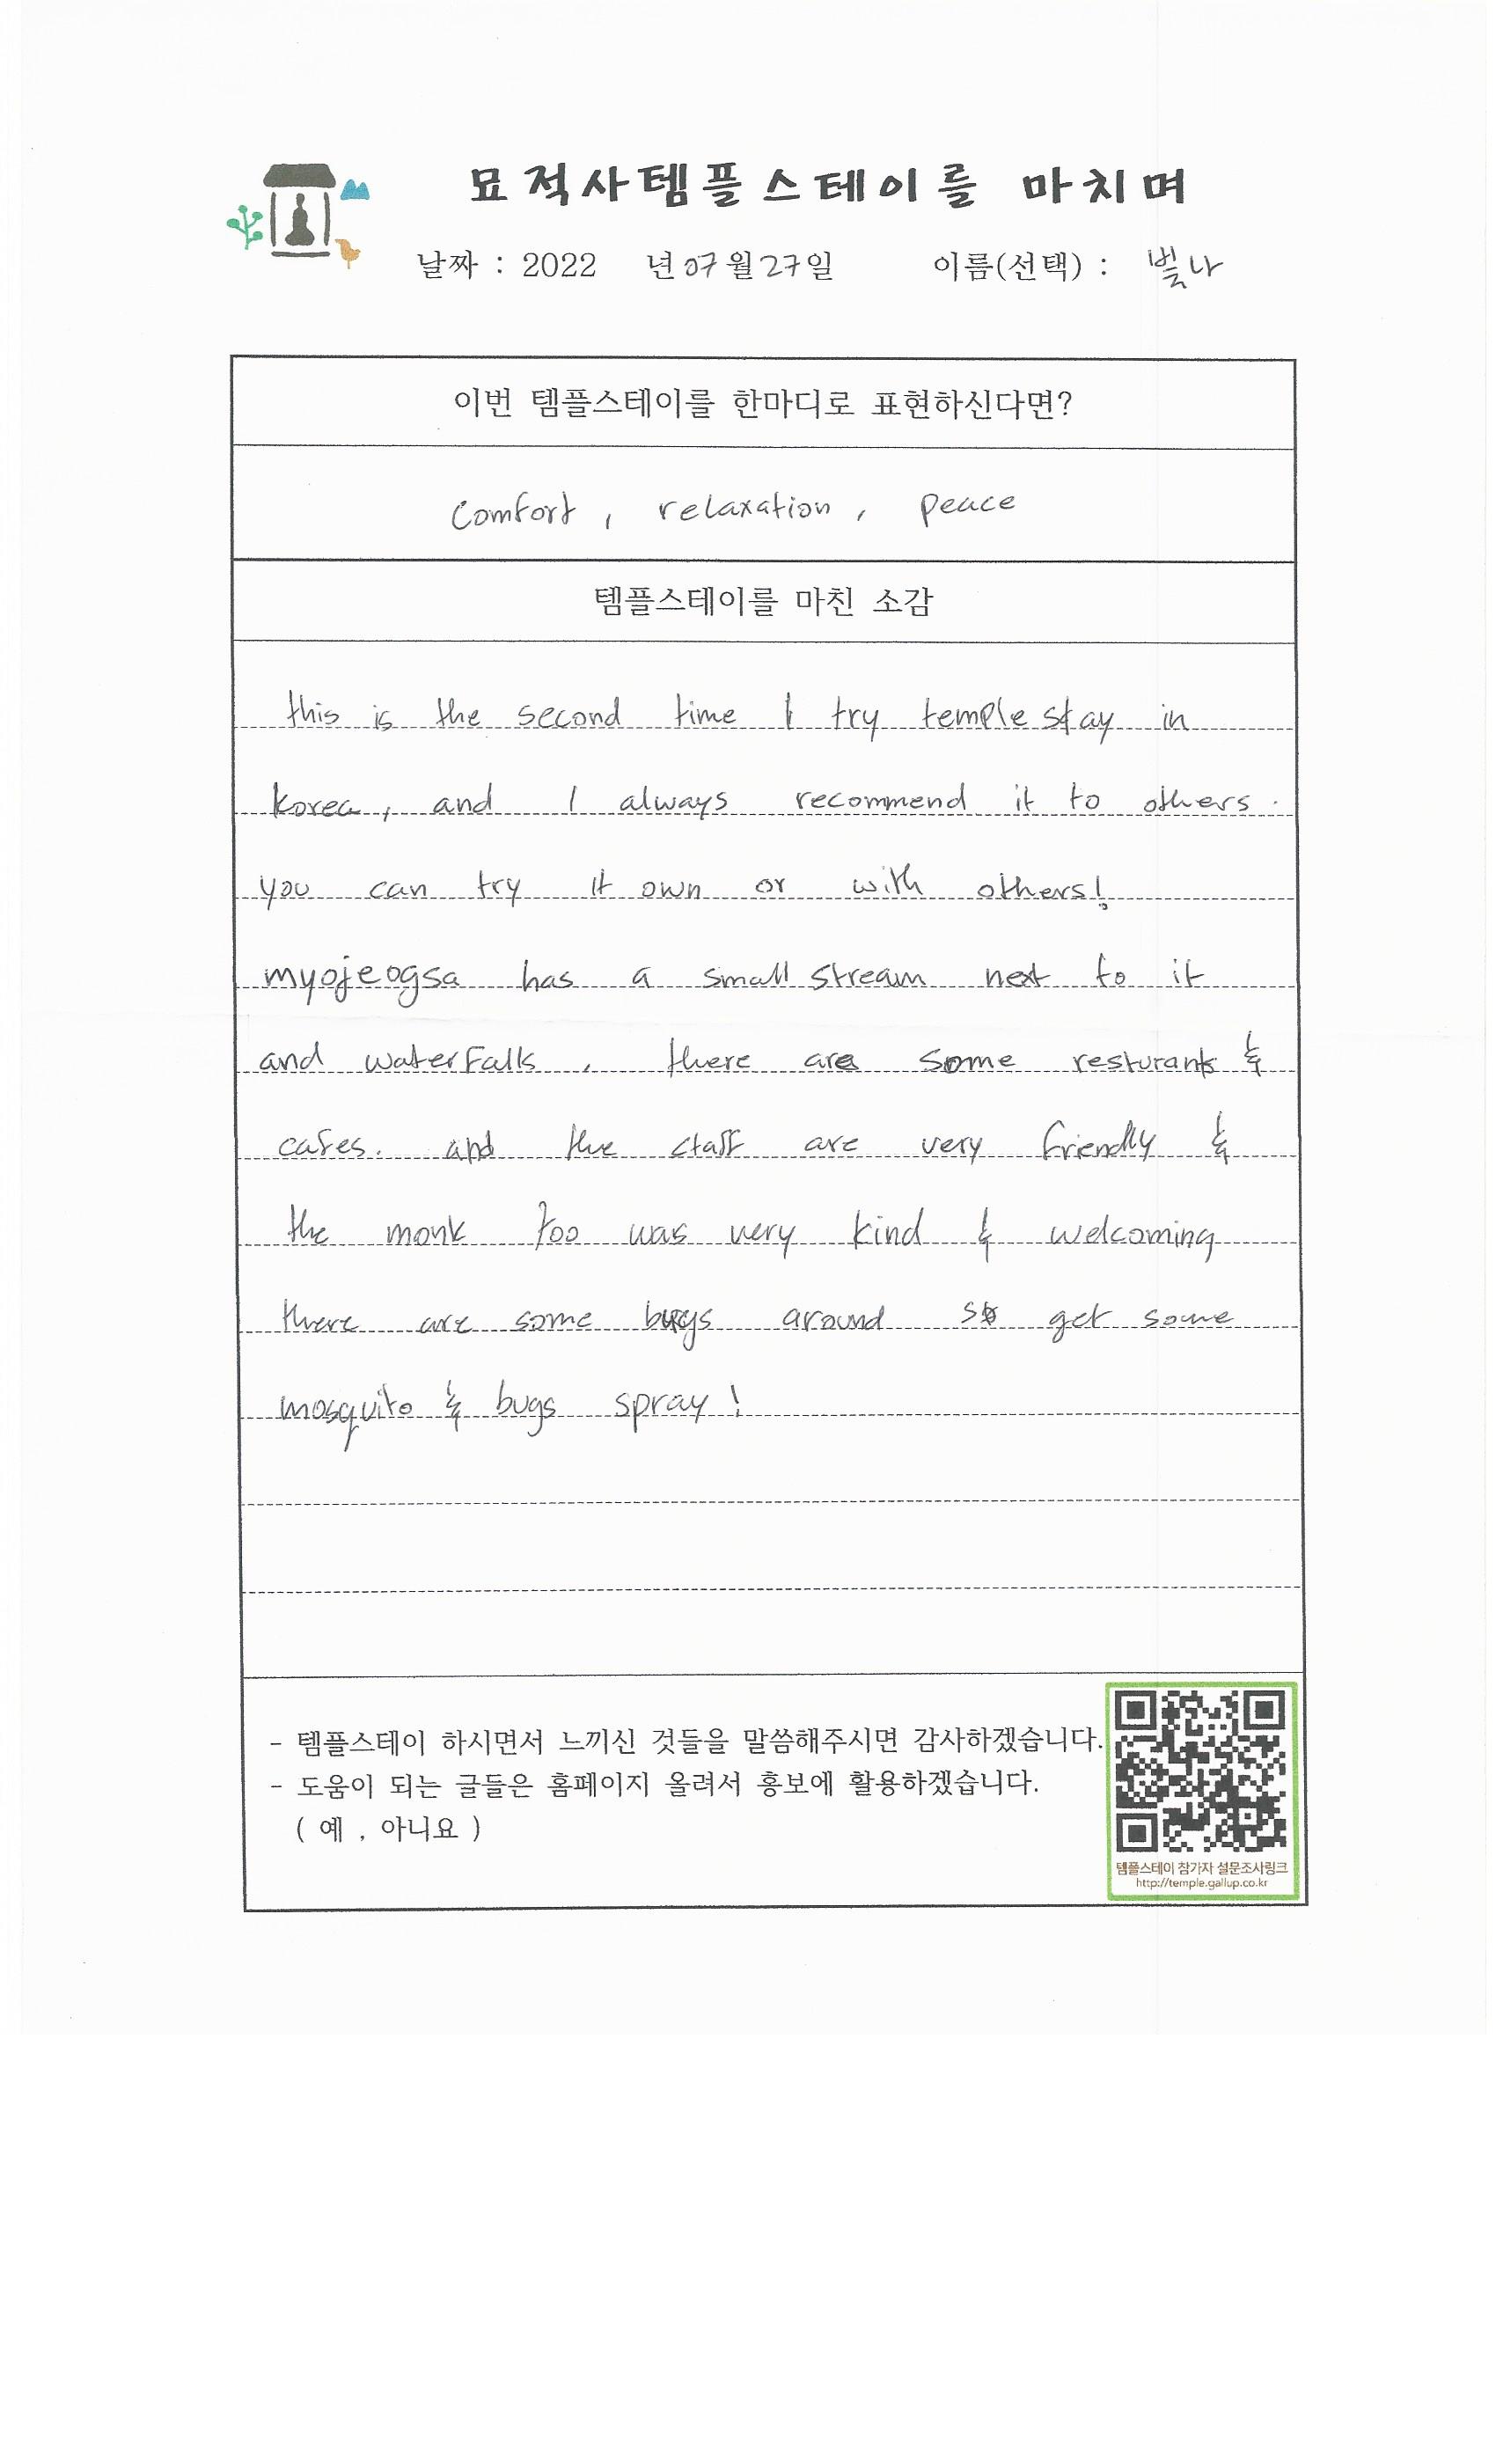 묘적사템플스테이를 마치며
날짜 : 2022 년 07 월 27 일 이름(선택) : 빛나
이번 템플스테이를 한마디로 표현하신다면?
comfort, relaxation, peace
템플스테이를 마친 소감
this is the second time I try temple stay in
korea, and I always recommend it to others.
you can try it own or with others!
myojeogsa has a small stream next to it
and waterfalls. there are some resturants &
cafes. and the staff are very friendly &
the monk too was very kind & welcoming
there are some bugs around so get some
mosquito & bugs spray!
- 템플스테이 하시면서 느끼신 것들을 말씀해주시면 감사하겠습니다.
- 도움이 되는 글들은 홈페이지 올려서 홍보에 활용하겠습니다.
( 예 , 아니요 )
템플스테이 참가자 설문조사링크
http://temple.gallup.co.kr